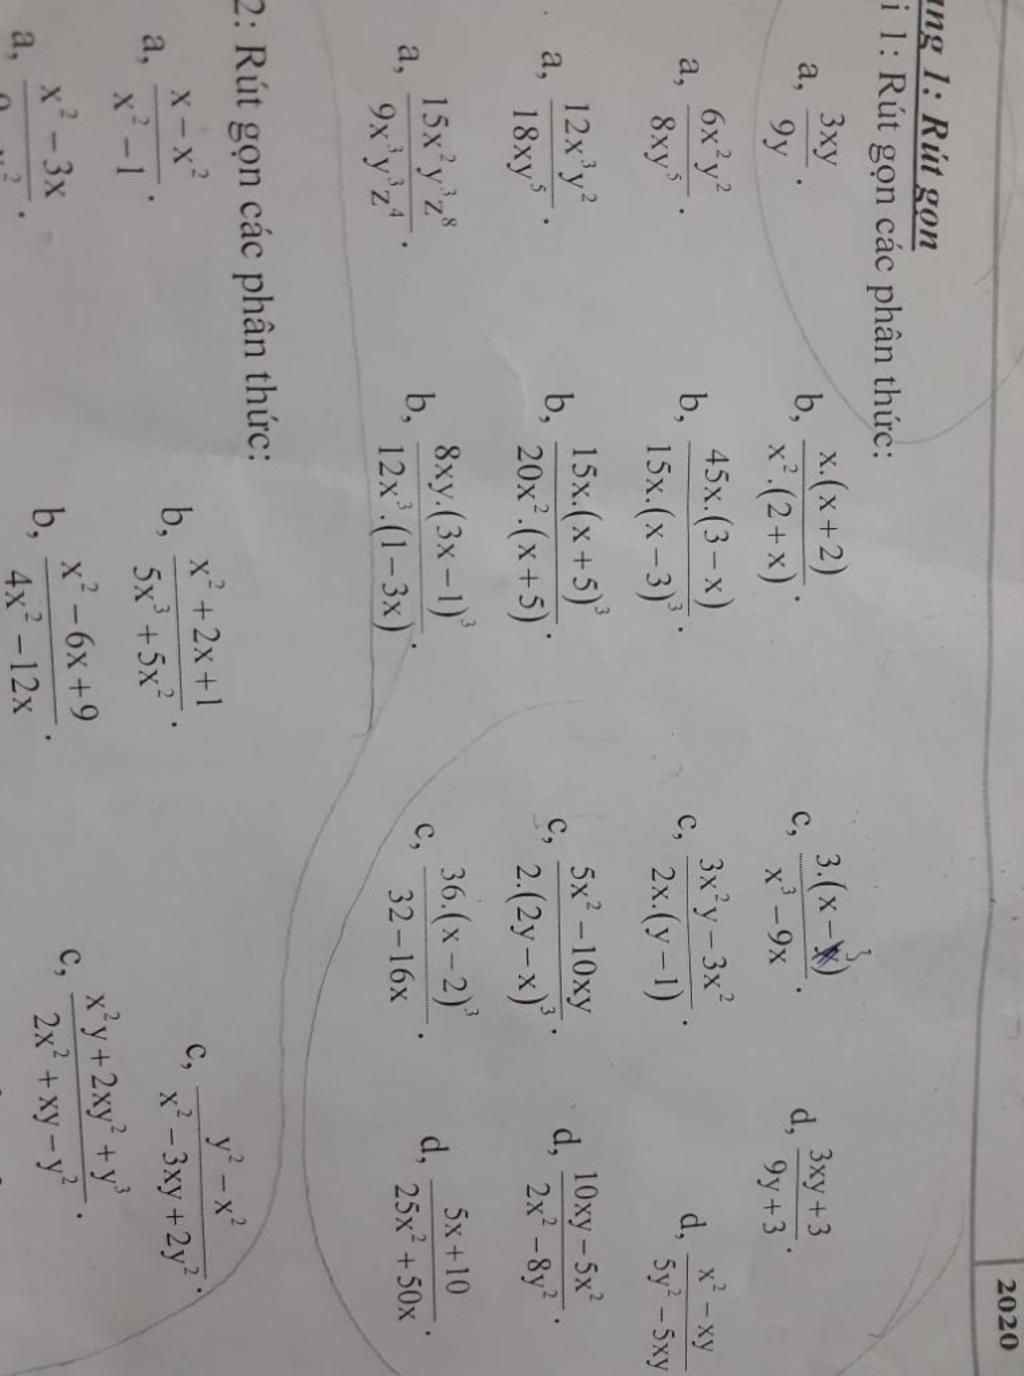 2020
ng 1: Rút gọn
i 1: Rút gọn các phân thức:
a, \frac{3xy}{9y}. b, \frac{x.(x+2)}{x^2.(2+x)}. c, \frac{3.(x-3)}{x^3-9x}. d, \frac{3xy+3}{9y+3}.
a, \frac{6x^2y^2}{8xy^5}. b, \frac{45x.(3-x)}{15x.(x-3)^3}. c, \frac{3x^2y-3x^2}{2x.(y-1)}. d, \frac{x^2-xy}{5y^2-5xy}
a, \frac{12x^3y^2}{18xy^5}. b, \frac{15x.(x+5)^3}{20x^2.(x+5)}. c, \frac{5x^2-10xy}{2.(2y-x)^3}. d, \frac{10xy-5x^2}{2x^2-8y^2}.
a, \frac{15x^2y^3z^8}{9x^3y^3z^4}. b, \frac{8xy.(3x-1)^3}{12x^3.(1-3x)}. c, \frac{36.(x-2)^3}{32-16x}. d, \frac{5x+10}{25x^2+50x}.
2: Rút gọn các phân thức:
a, \frac{x-x^2}{x^2-1}. b, \frac{x^2+2x+1}{5x^3+5x^2}. c, \frac{y^2-x^2}{x^2-3xy+2y^2}.
a, x^2-3x b, \frac{x^2-6x+9}{4x^2-12x}. c, \frac{x^2y+2xy^2+y^3}{2x^2+xy-y^2}.